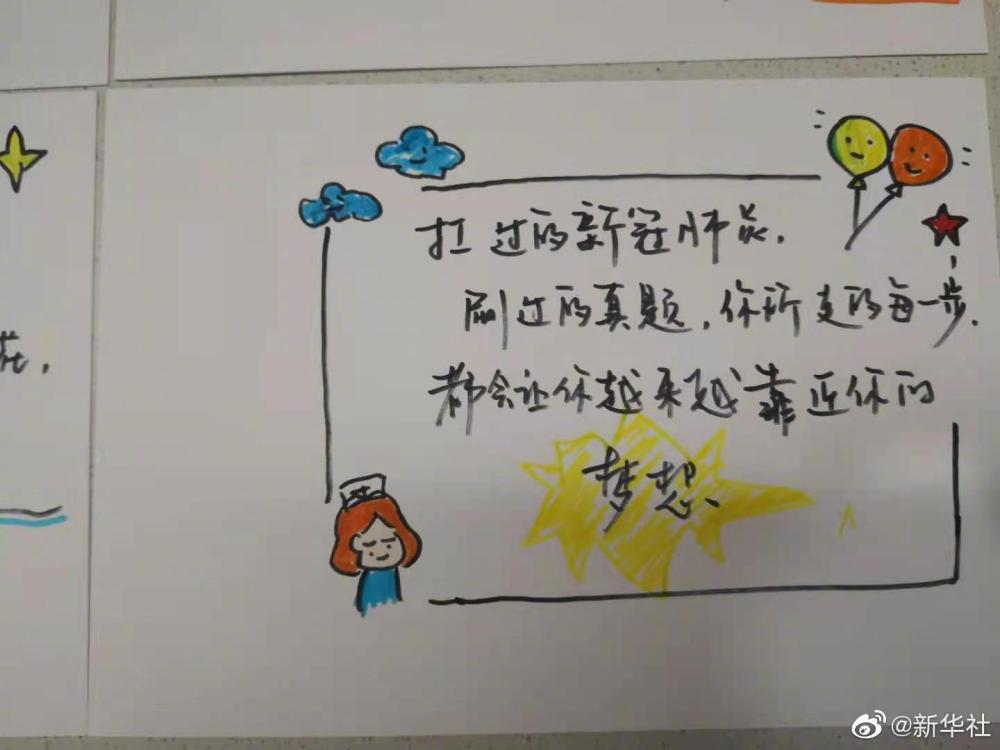 扛过的新冠肺炎,
刷过的真题,你所走的每一步,
都会让你越来越靠近你的
梦想、
花,
@新华社